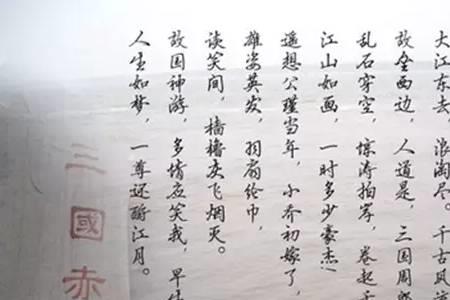 大江东去,浪淘尽。千古风流
故垒西边,人道是,三国周郎
乱石穿空,惊涛拍岸,卷起
江山如画,一时多少豪杰!
遥想公瑾当年,小乔初嫁了,
雄姿英发,羽扇纶巾,
谈笑间,樯橹灰飞烟灭。
故国神游,多情应笑我,早生
人生如梦,一尊还酹江月。
三國赤